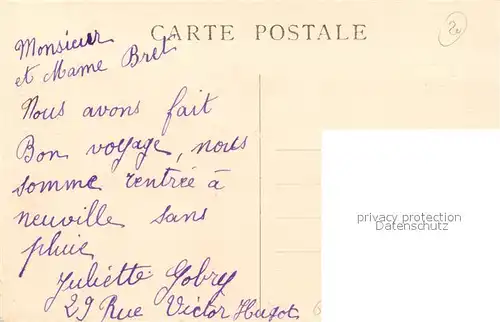 CARTE POSTALE
Monsieur
et Mame Bret
Nous avons fait
Bon voyage, nous
somme rentrée à
neuville sans
pluie
Juliette Gobry
29 Rue Victor Hugot
privacy protection
Datenschutz